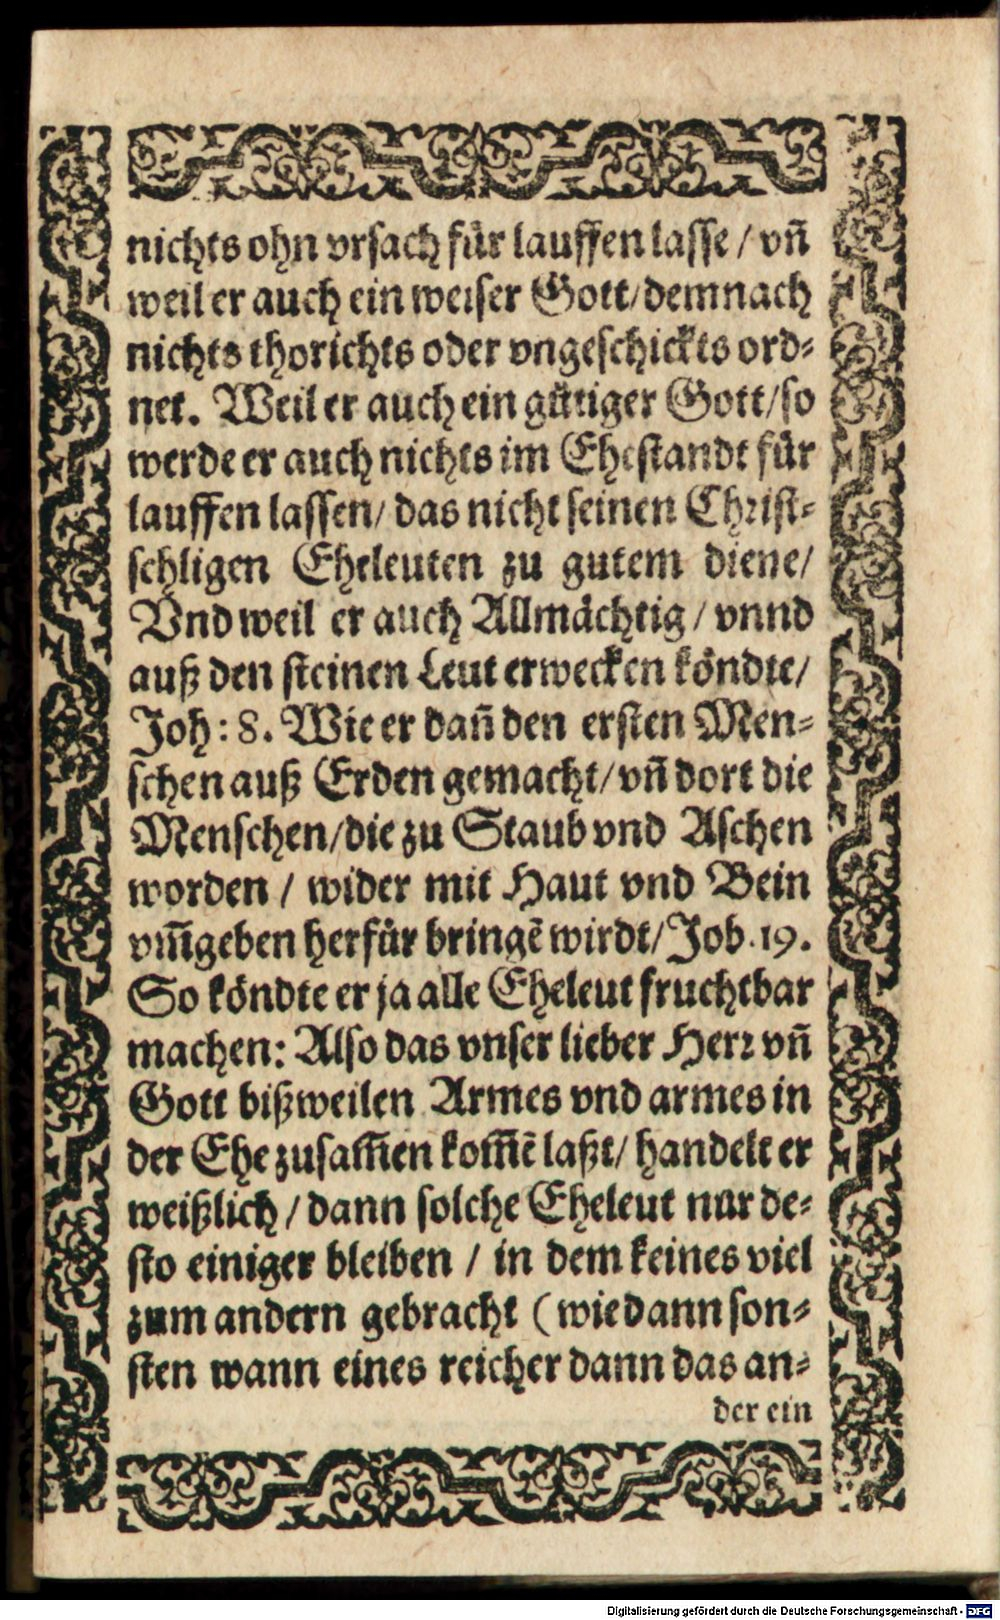 nichts ohn vrsach für lauffen lasse / vñ
weil er auch ein weiser Gott / demnach
nichts thorichts oder vngeschickts ord⸗
net. Weil er auch ein gütiger Gott / so
werde er auch nichts im Ehestandt für
lauffen lassen / das nicht seinen Christ⸗
sehligen Eheleuten zu gutem diene /
Vnd weil er auch Allmächtig / vnnd
auß den steinen Leut erwecken köndte /
Joh: 8. Wie er dañ den ersten Men⸗
schen auß Erden gemacht / vñ dort die
Menschen / die zu Staub vnd Aschen
worden / wider mit Haut vnd Bein
vm̃geben herfür bringẽ wirdt / Job. 19.
So köndte er ja alle Eheleut fruchtbar
machen: Also das vnser lieber Herr vñ
Gott bißweilen Armes vnd armes in
der Ehe zusam̃en kom̃ẽ laßt / handelt er
weißlich / dann solche Eheleut nur de⸗
sto einiger bleiben / in dem keines viel
zum andern gebracht ( wie dann son⸗
sten wann eines reicher dann das an⸗
der ein
Digitalisierung gefördert durch die Deutsche Forschungsgemeinschaft - DFG